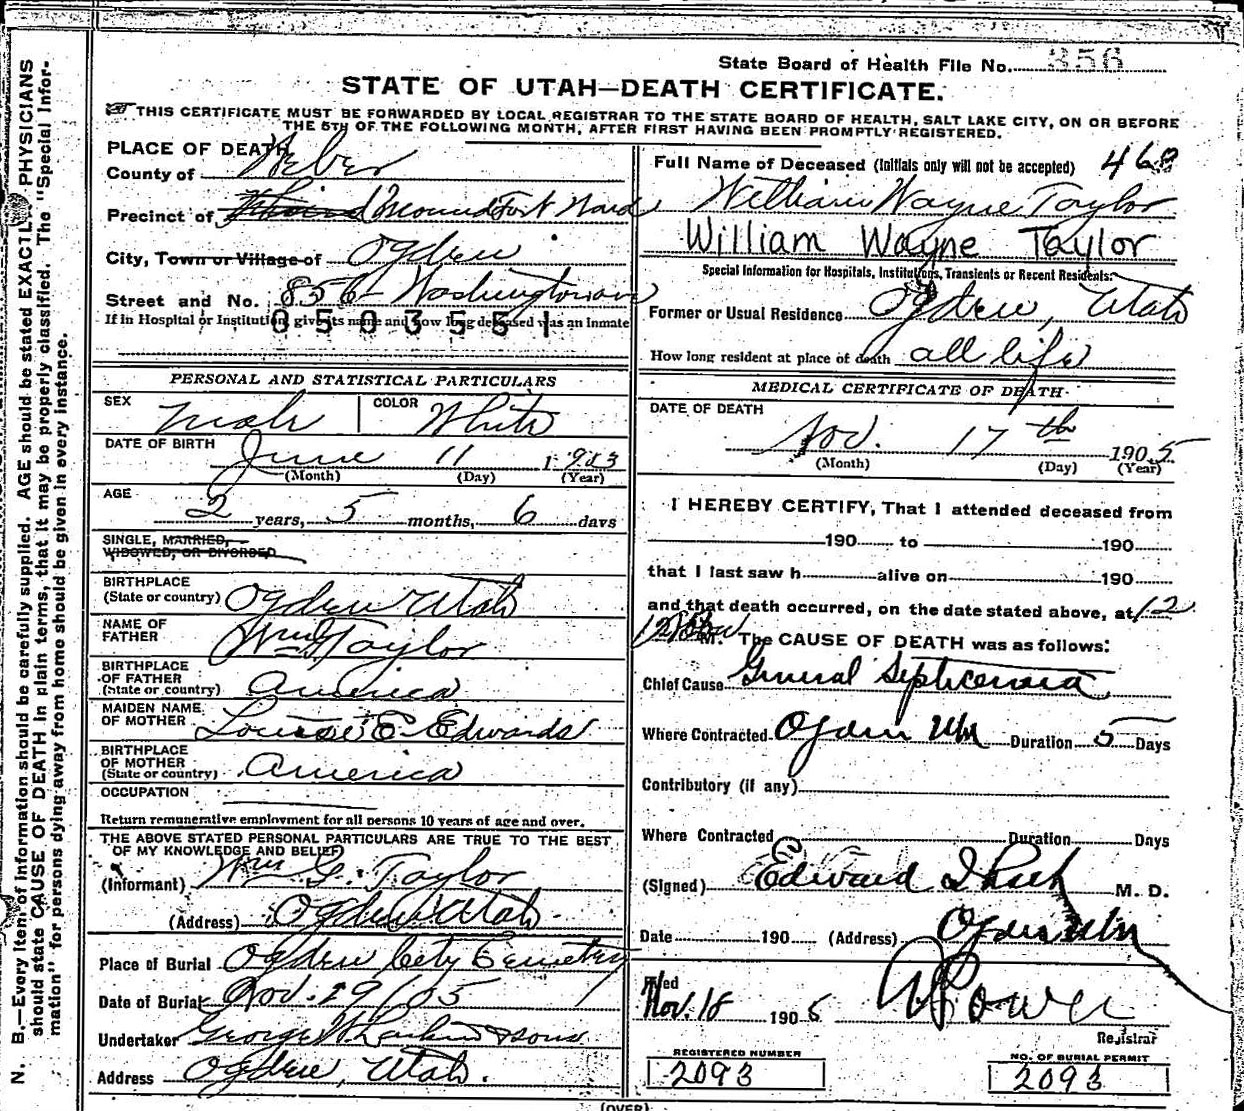 State Board of Health File No. 356
STATE OF UTAH—DEATH CERTIFICATE.
THIS CERTIFICATE MUST BE FORWARDED BY LOCAL REGISTRAR TO THE STATE BOARD OF HEALTH, SALT LAKE CITY, ON OR BEFORE
THE 5TH OF THE FOLLOWING MONTH, AFTER FIRST HAVING BEEN PROMPTLY REGISTERED.
N. B.—Every item of information should be carefully supplied. AGE should be stated EXACTLY. PHYSICIANS
should state CAUSE OF DEATH in plain terms, that it may be properly classified. The "Special Infor-
mation" for persons dying away from home should be given in every instance.
PLACE OF DEATH
County of Weber
Precinct of Mound Fort Ward
City, Town or Village of Ogden
Street and No. 856 Washington ave
If in Hospital or Institution, give its name and how long deceased was an inmate
0503551
PERSONAL AND STATISTICAL PARTICULARS
SEX Male COLOR White
DATE OF BIRTH June 11 1903
(Month) (Day) (Year)
AGE
2 years, 5 months, 6 days
SINGLE, MARRIED,
WIDOWED, OR DIVORCED
BIRTHPLACE
(State or country) Ogden Utah
NAME OF
FATHER Wm G Taylor
BIRTHPLACE
OF FATHER
(State or country) America
MAIDEN NAME
OF MOTHER Louise E. Edwards
BIRTHPLACE
OF MOTHER
(State or country) America
OCCUPATION
Return remunerative employment for all persons 10 years of age and over.
THE ABOVE STATED PERSONAL PARTICULARS ARE TRUE TO THE BEST
OF MY KNOWLEDGE AND BELIEF
(Informant) Wm G. Taylor
(Address) Ogden Utah
Place of Burial Ogden City Cemetery
Date of Burial Nov. 19/05
Undertaker George W Larkin & sons
Address Ogden, Utah.
Full Name of Deceased (Initials only will not be accepted) 468
William Wayne Taylor
William Wayne Taylor
Special Information for Hospitals, Institutions, Transients or Recent Residents:
Former or Usual Residence Ogden, Utah
How long resident at place of death all life
MEDICAL CERTIFICATE OF DEATH
DATE OF DEATH
Nov. 17 th 1905
(Month) (Day) (Year)
I HEREBY CERTIFY, That I attended deceased from
190 to 190
that I last saw h alive on 190
and that death occurred, on the date stated above, at 12
M. The CAUSE OF DEATH was as follows:
Chief Cause General Septicemia
Where Contracted Ogden Utah Duration 5 Days
Contributory (if any)
Where Contracted Duration Days
(Signed) Edward I Rich M. D.
Date 190 (Address) Ogden Utah
Filed
Nov. 18 1905
Registrar
REGISTERED NUMBER
2093
NO. OF BURIAL PERMIT
2093
(OVER)